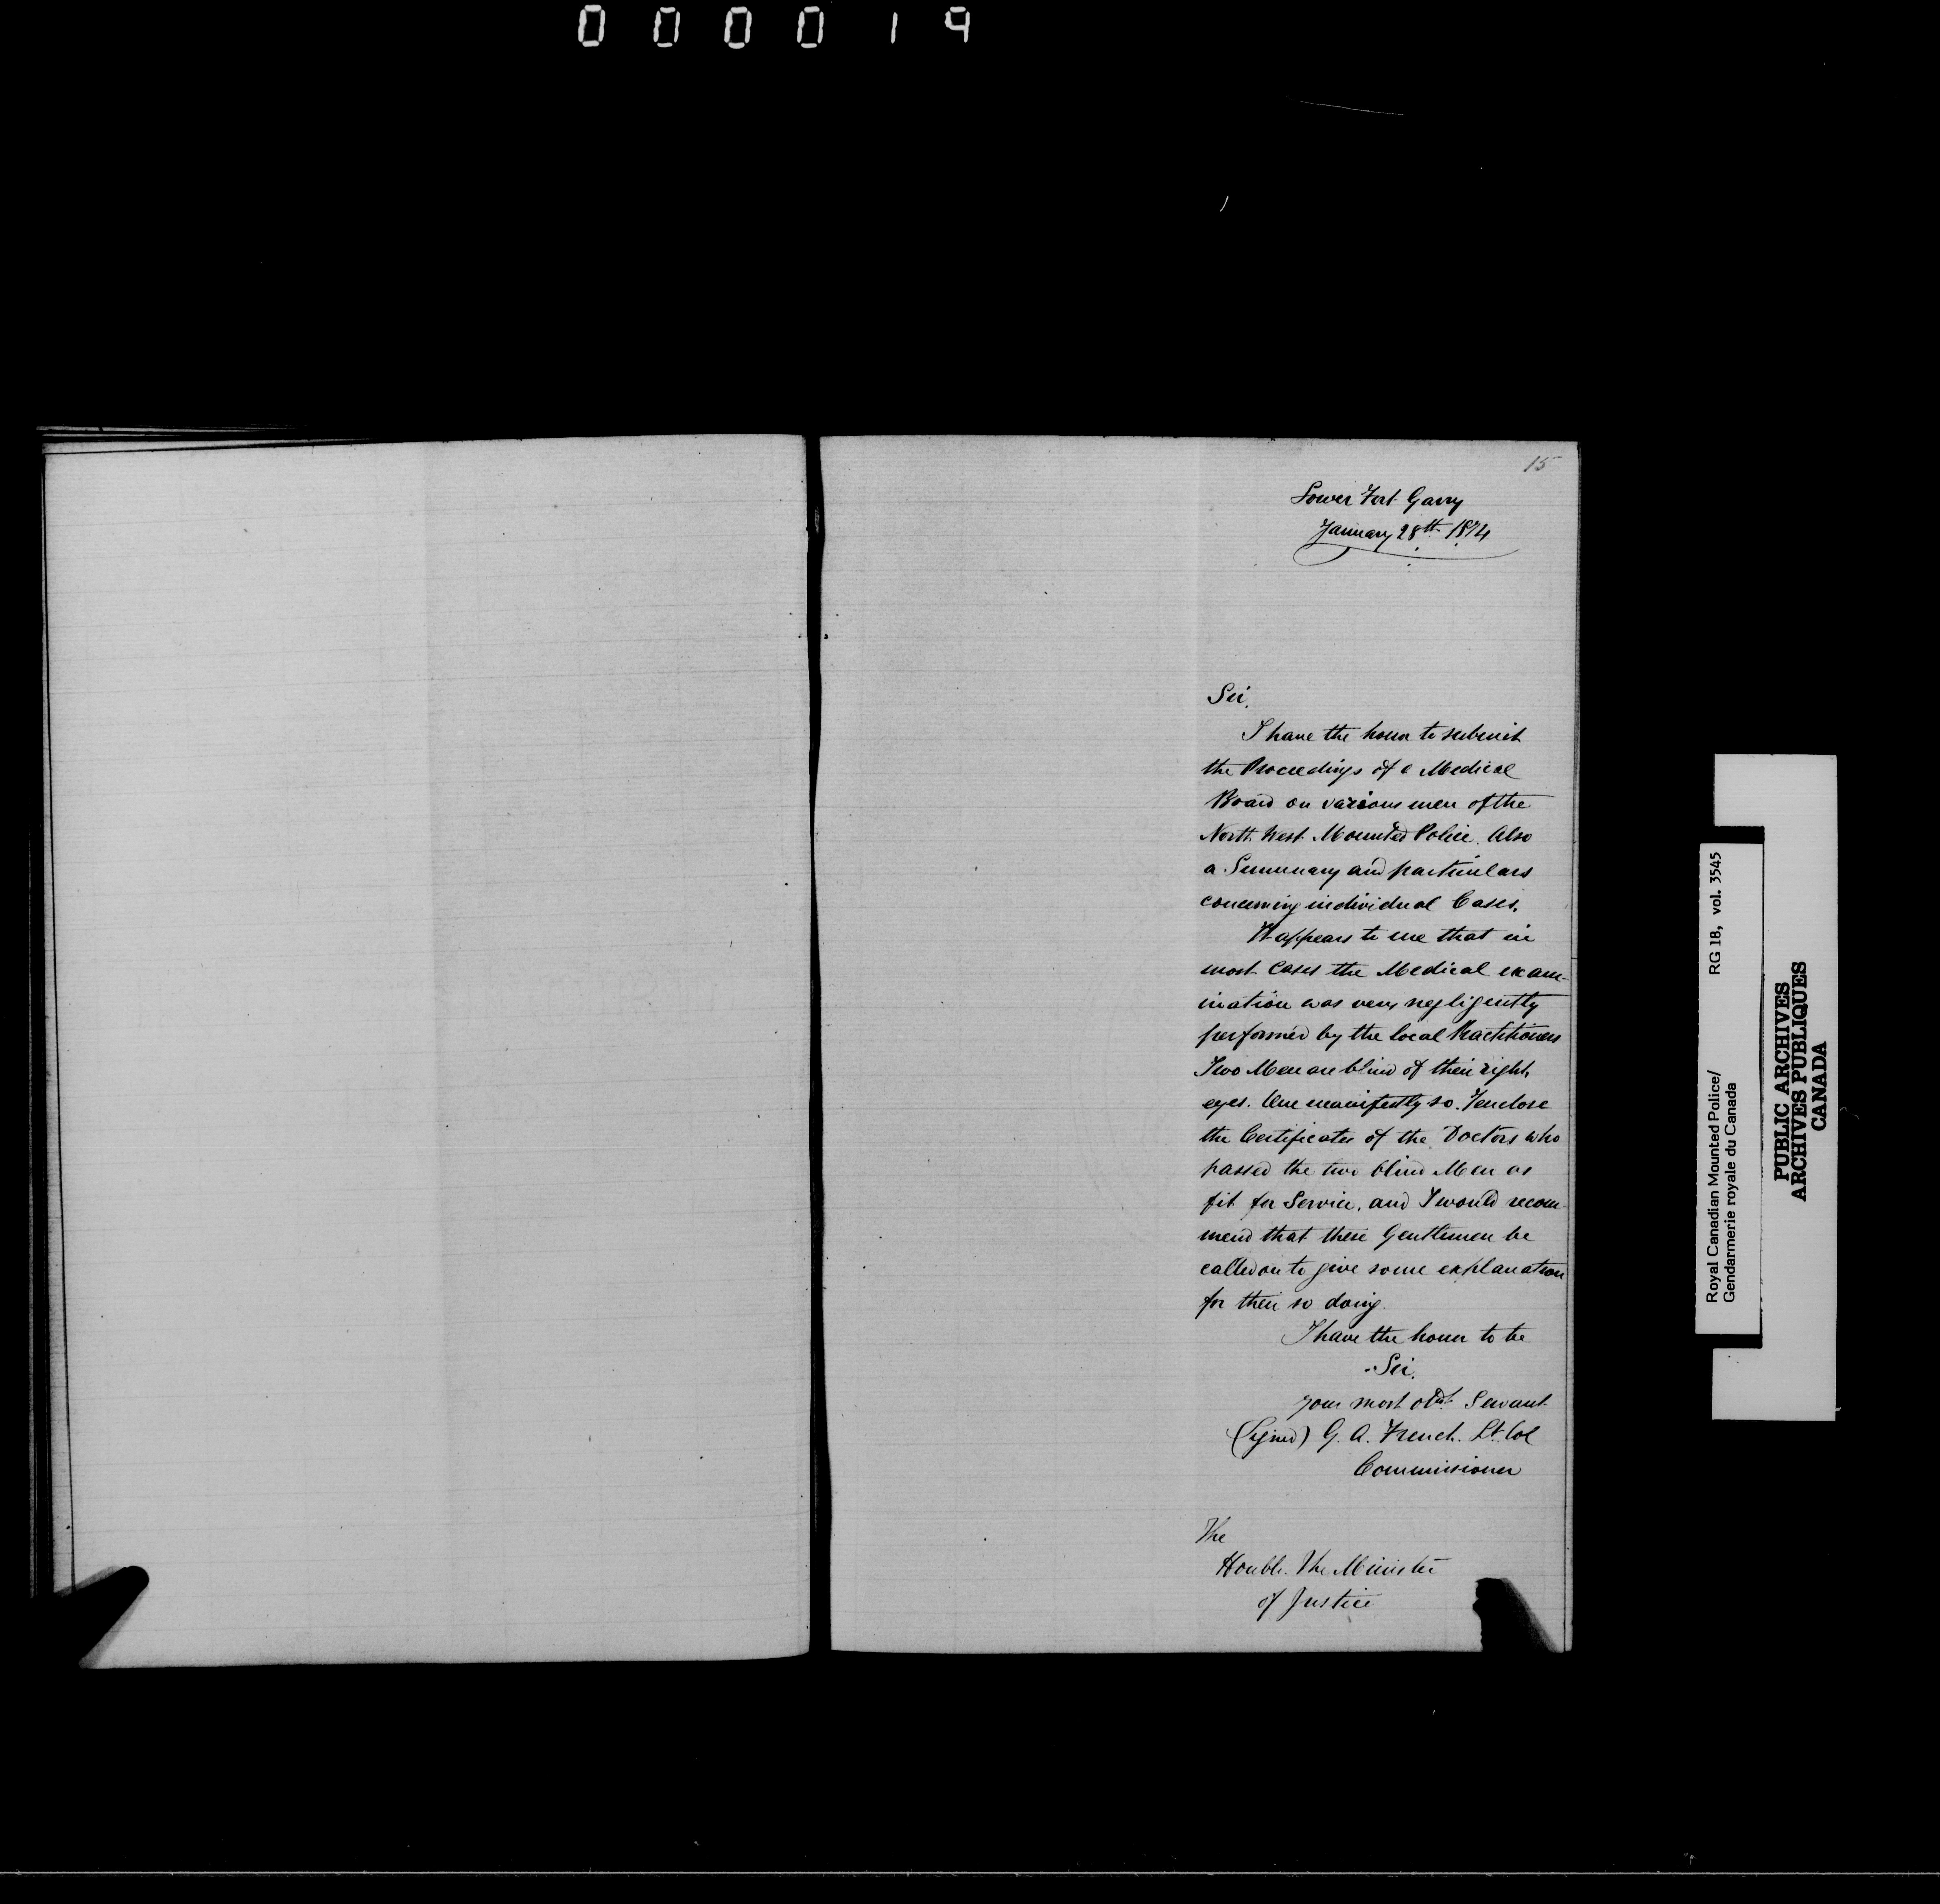 000019
15
Lower Fort Garry
January 28th 1874
Sir,
I have the honor to submit
the Proceedings of a Medical
Board on various men of the
North West Mounted Police. Also
a Summary and particulars
concerning individual Cases.
It appears to me that in
most cases the Medical exam-
ination was very negligently
performed by the local Practitioners
Two Men are blind of their right
eyes. One manifestly so. I enclose
the Certificates of the Doctors who
passed the two blind Men as
fit for Service, and I would recom-
mend that these Gentlemen be
called on to give some explanation
for their so doing.
I have the honor to be
Sir,
your most obdt Servant
(Signed) G. A. French. Lt. Col
Commissioner
The
Honble. The Minister
of Justice
Royal Canadian Mounted Police/ RG 18, vol. 3545
Gendarmerie royale du Canada
PUBLIC ARCHIVES
ARCHIVES PUBLIQUES
CANADA